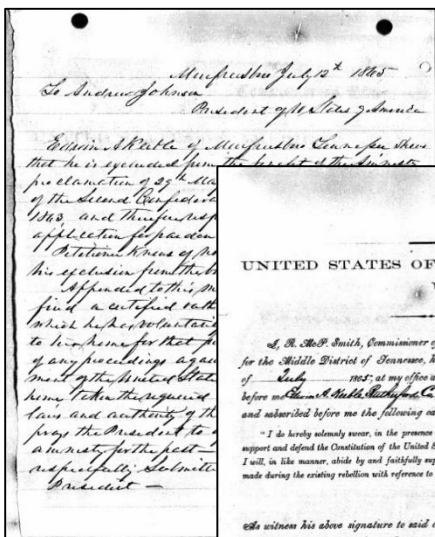 Murfreesboro July 12th 1865
To Andrew Johnson
President of U States of America
Edwin A Keeble of Murfreesboro Tennessee Shews
that he is excluded from the benefit of the Amnesty
proclamation of 29th Ma
of the Second Confedera
1863 and therefore resp
application for pardon
Petitioner knows of no
his exclusion from the
Appended to this,
find a certified oath
which he has voluntari
to his home for that
of any proceedings again
ment of the United State
home taken the required
laws and authority of th
prays the President to
amnesty for the past
respectfully Submitte
President
UNITED STATES OF
I, R. McP. Smith, Commissioner o
for the Middle District of Tennessee, h
of July 1865, at my office i
before me Edwin A. Keeble Rutherford Co
and subscribed before me the following oa
"I do hereby solemnly swear, in the presence
support and defend the Constitution of the United S
I will, in like manner, abide by and faithfully sup
made during the existing rebellion with reference to
As witness his above signature to said o